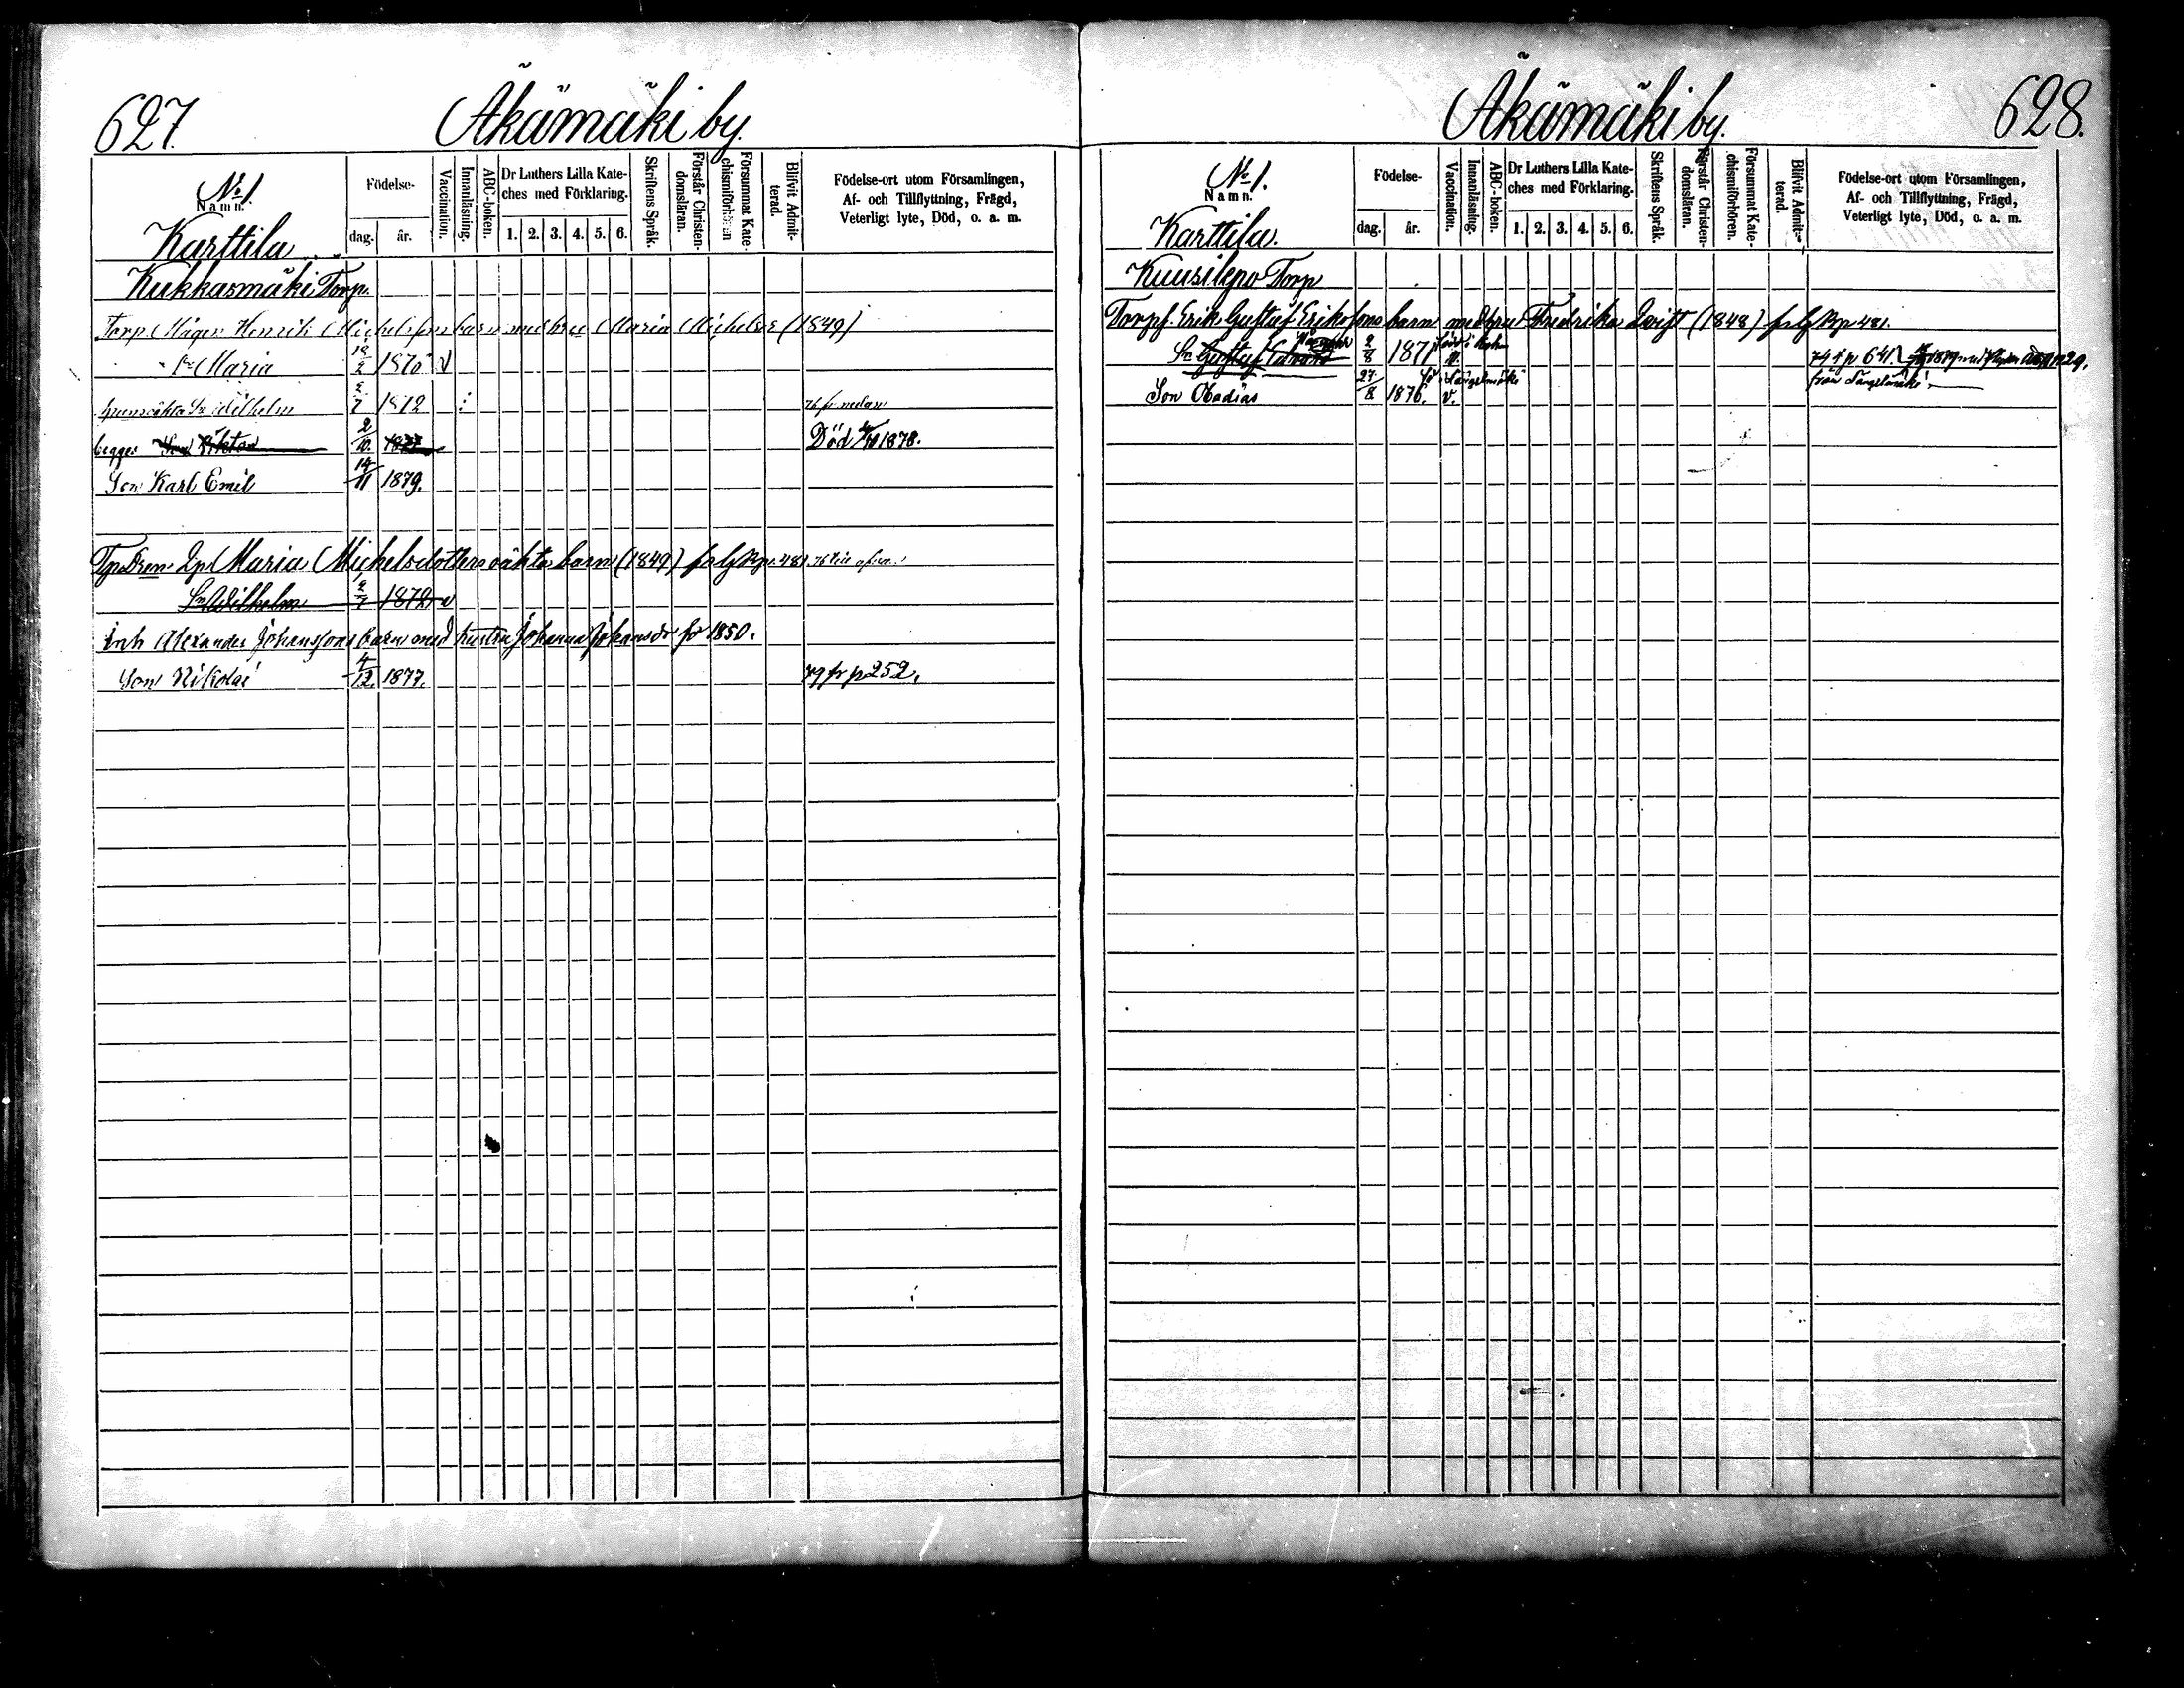 627.
Äkämäki by.
No 1
Namn.
Karttila
Födelse-
dag.
år.
Vaccination.
Innanläsning.
ABC-boken.
Dr Luthers Lilla Kate-
ches med Förklaring.
1. 2. 3. 4. 5. 6.
Skriftens Språk.
Förstår Christen-
domsläran.
Försummat Kate-
chismiförhören
Blifvit Admit-
terad.
Födelse-ort utom Församlingen,
Af- och Tillflyttning, Frägd,
Veterligt lyte, Död, o. a. m.
Kukkasmäki Torp.
Torp. Mågen Henrik barn med hru Maria (1849)
Maria 18/2 1870 v
oäkta Sn Wilhelm 2/7 1872 76 fr nedan
begges Son Viktor 2/10. Död 1878.
Son Karl Emil 14/11 1879.
Maria Michelsdotters oäkta barn (1849)
Sn Wilhelm 2/7 1872 v
Inh Alexander Johanssons barn med hustru Johanna Johansdr för 1850.
Son Nikolai 4/12. 1877. 79 fr p 252.
Äkämäki by.
628.
No 1.
Namn.
Karttila.
Födelse-
dag.
år.
Vaccination.
Innanläsning.
ABC-boken.
Dr Luthers Lilla Kate-
ches med Förklaring.
1. 2. 3. 4. 5. 6.
Skriftens Språk.
Förstår Christen-
domsläran.
Försummat Kate-
chismiförhören.
Blifvit Admit-
terad.
Födelse-ort utom Församlingen,
Af- och Tillflyttning, Frägd,
Veterligt lyte, Död, o. a. m.
Kuusilepo Torp
Torpf. Erik Gustaf Erikssons barn med hru Fredrika Qvist (1848)
Sn Gustaf Edvard 2/8 1871 v. 74 f p 641
från Längelmäki
Son Obadias 27/8 1876. v.